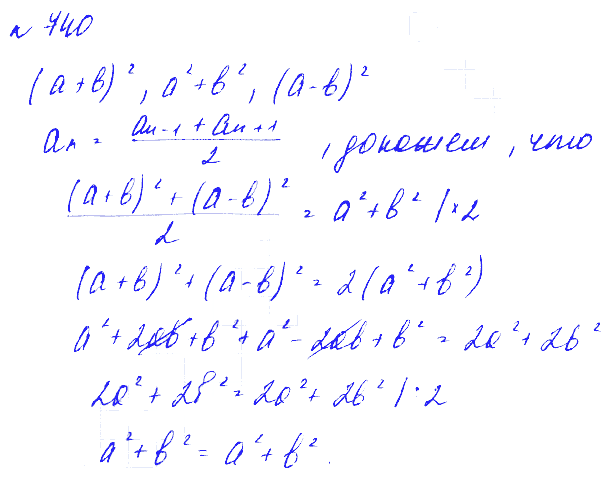 № 740
(a+b)², a²+b², (a-b)²
aₙ = (aₙ₋₁ + aₙ₊₁)/2, докажем, что
((a+b)² + (a-b)²)/2 = a²+b² |×2
(a+b)² + (a-b)² = 2(a²+b²)
a² + 2ab + b² + a² - 2ab + b² = 2a² + 2b²
2a² + 2b² = 2a² + 2b² | · 2
a² + b² = a² + b².